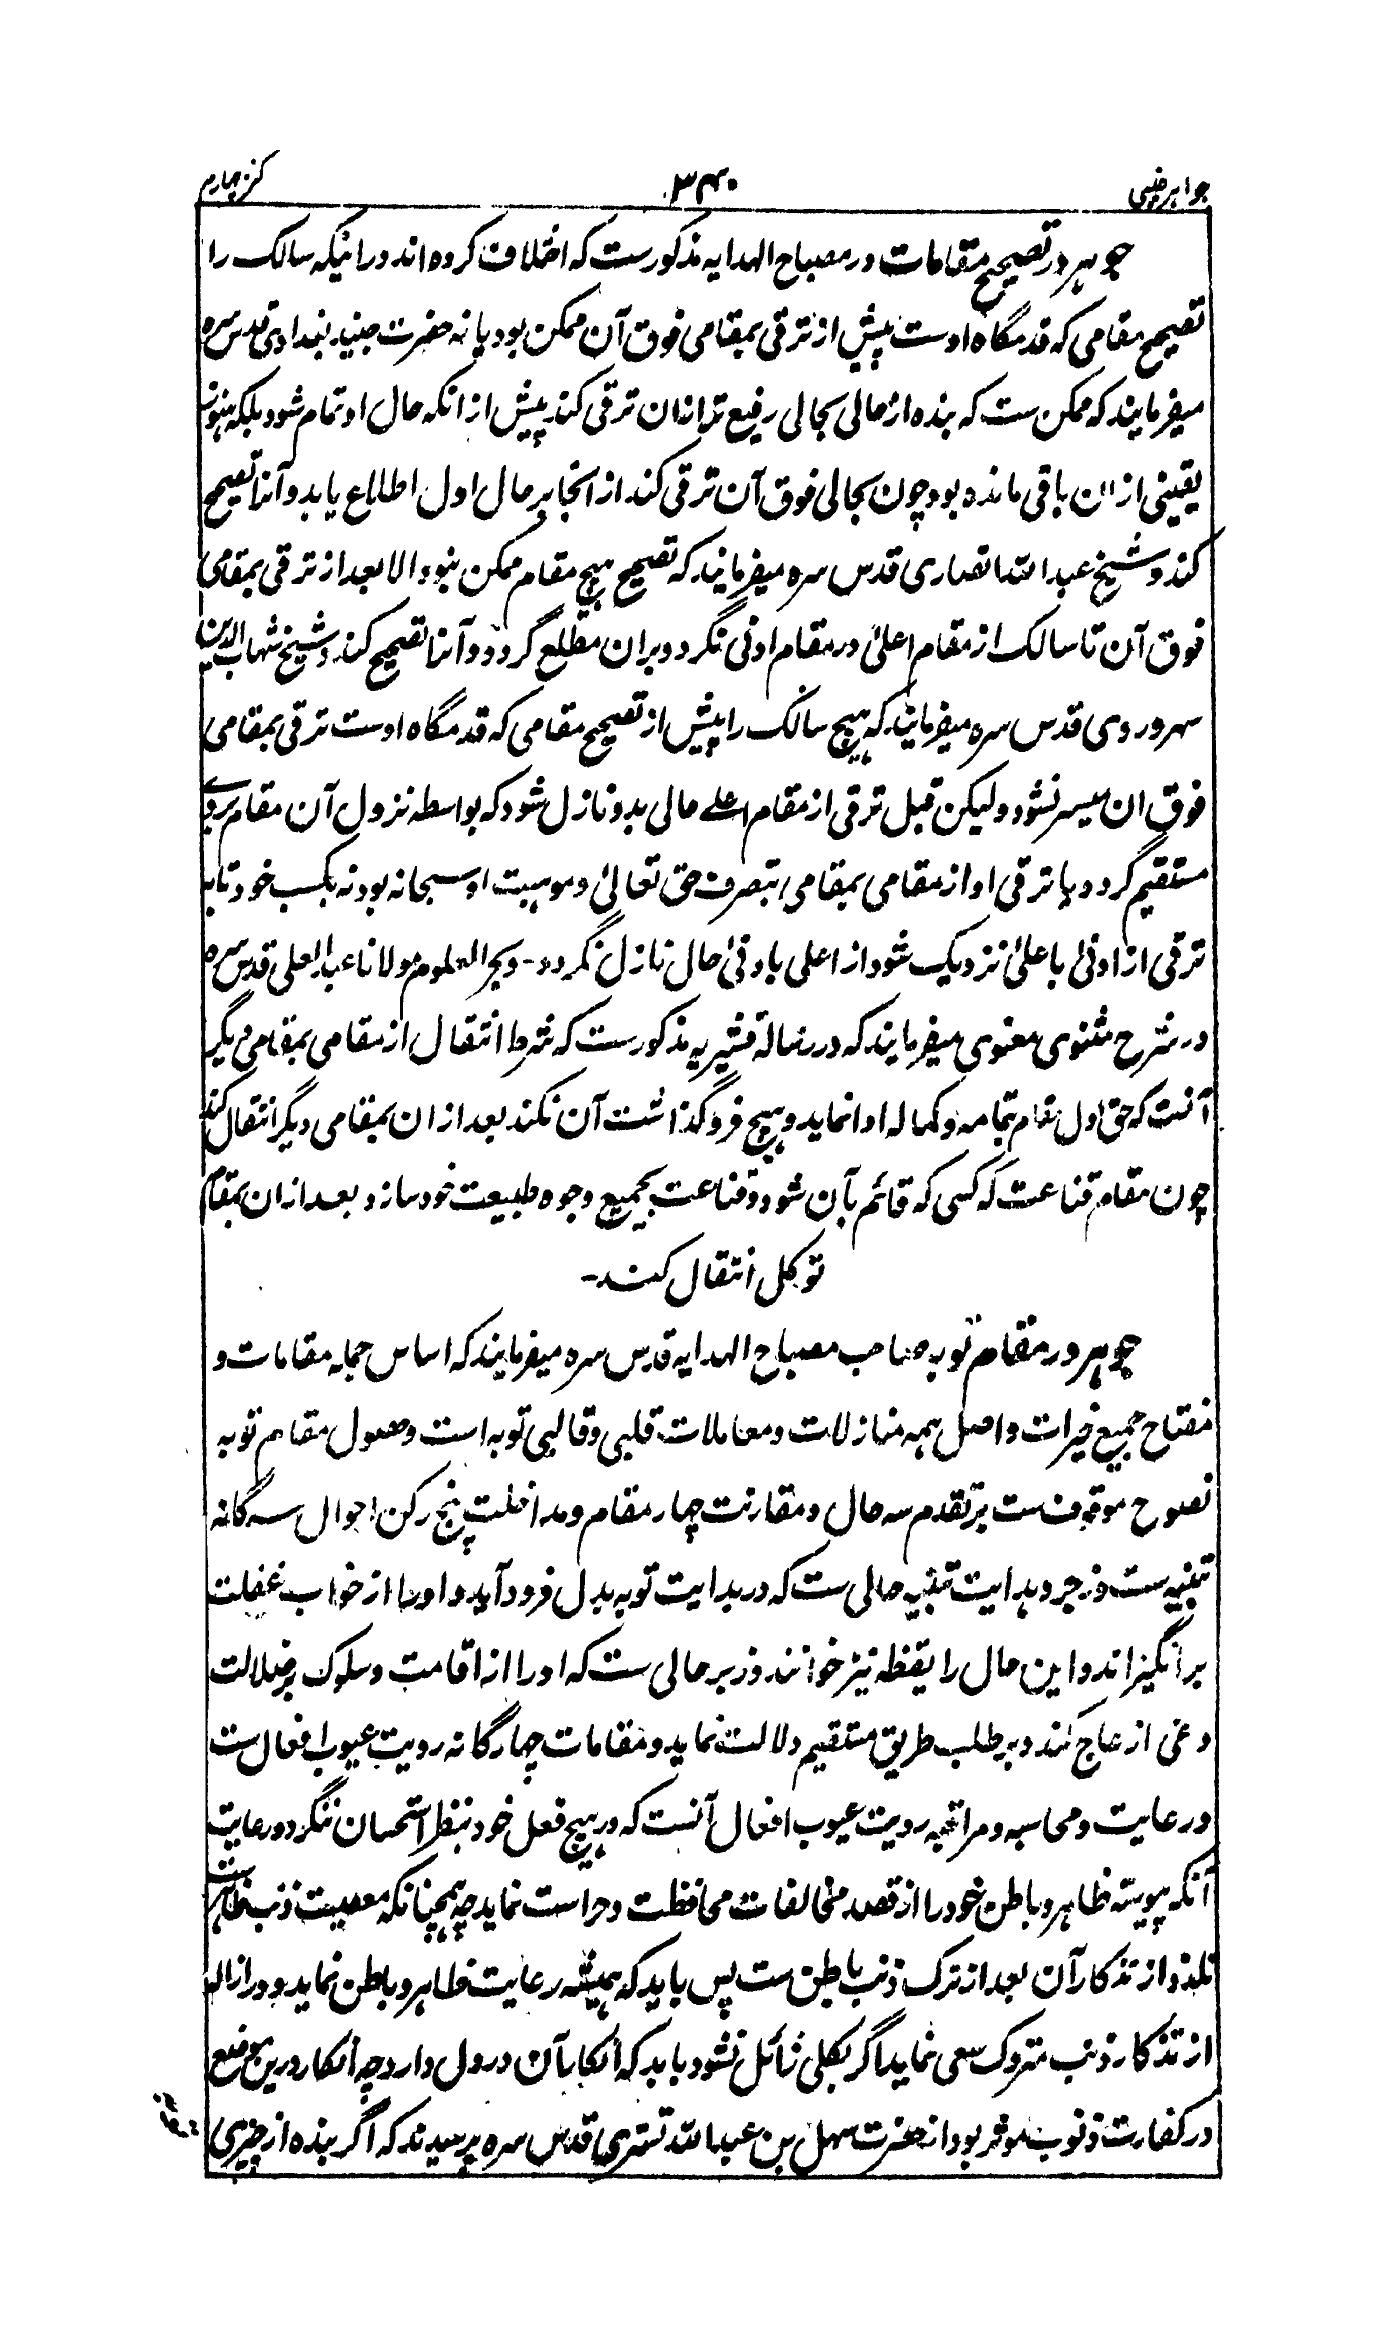 جواہر غیبی
۳۴۰
کنز چہارم
جوہر در تصحیح مقامات در مصباح الہدایہ مذکورست کہ اختلاف کردہ اند درانیکہ سالک را
تصحیح مقامی کہ قدمگاہ اوست پیش از ترقی بمقامی فوق آن ممکن بود یا نہ حضرت جنید بغدادی قدس سرہ
میفرمایند کہ ممکن ست کہ بندہ از حالی بحالی رفیع تر ازان ترقی کند پیش از انکہ حال او تمام شود بلکہ ہنوز
یقینی از ان باقی ماندہ بود چون بحالی فوق آن ترقی کند از انجا بر حال اول اطلاع یابد و آنرا تصحیح
کند و شیخ عبد اللہ انصاری قدس سرہ میفرمایند کہ تصحیح ہیچ مقام ممکن نبود الا بعد از ترقی بمقامی
فوق آن تا سالک از مقام اعلیٰ در مقام ادنی نگرد و بران مطلع گردد و آنرا تصحیح کند و شیخ شہاب الدین
سہروردی قدس سرہ میفرمایند کہ ہیچ سالک را پیش از تصحیح مقامی کہ قدمگاہ اوست ترقی بمقامی
فوق ان میسر نشود و لیکن قبل ترقی از مقام اعلے حالی بدو نازل شود کہ بواسطہ نزول آن مقام بروے
مستقیم گردد یا ترقی او از مقامی بمقامی بتصرف حق تعالیٰ و موہبت او سبحانہ بود نہ بکسب خود تا بہ
ترقی از ادنیٰ با علیٰ نزدیک شود از اعلی بادنیٰ حال نازل نگردد - و بحر العلوم مولانا عبد العلی قدس سرہ
در شرح مثنوی معنوی میفرمایند کہ در رسالۂ قشیریہ مذکورست کہ شرط انتقال از مقامی بمقامی دیگر
آنست کہ حق اول مقام بتمامہ و کمالہ ادا نماید و ہیچ فروگذاشت آن نکند بعد از ان بمقامی دیگر انتقال کند
چون مقام قناعت کہ کسی کہ قائم بآن شود و قناعت بجمیع وجوہ طبیعت خود سازد بعد ازان بمقام
توکل انتقال کند -
جوہر در مقام توبہ صاحب مصباح الہدایہ قدس سرہ میفرمایند کہ اساس جملہ مقامات و
مفتاح جمیع خیرات و اصل ہمہ منازلات و معاملات قلبی و قالبی توبہ است و حصول مقام توبہ
نصوح موقوف ست بر تقدم سہ حال و مقارنت چہار مقام و مداخلت پنج رکن احوال سہ گانہ
تنبیہ ست و زجر و ہدایت تنبیہ حالی ست کہ در بدایت توبہ بدل فرود آید و اورا از خواب غفلت
برانگیزاند و این حال را یقظہ نیز خوانند و زجر حالی ست کہ اورا از اقامت و سلوک بر ضلالت
و غی ازعاج کند و بر طلب طریق مستقیم دلالت نماید و مقامات چہارگانہ رویت عیوب افعال ست
و رعایت و محاسبہ و مراقبہ رویت عیوب افعال آنست کہ در ہیچ فعل خود بنظر استحسان ننگرد و رعایت
آنکہ پیوستہ ظاہر و باطن خود را از قصد مخالفات محافظت و حراست نماید چہ ہمچنانکہ معصیت ذنب ظاہر ست
تلذذ از تذکار آن بعد از ترک ذنب باطن ست پس باید کہ ہمیشہ رعایت ظاہر و باطن نماید و در ازالہ
از تذکار ذنب متروک سعی نماید اگر بکلی زائل نشود باید کہ انکار بآن در دل دارد چہ انکار درین موضع
در کفارت ذنوب موثر بود از حضرت سہل بن عبد اللہ تستری قدس سرہ پرسیدند کہ اگر بندہ از چیزی